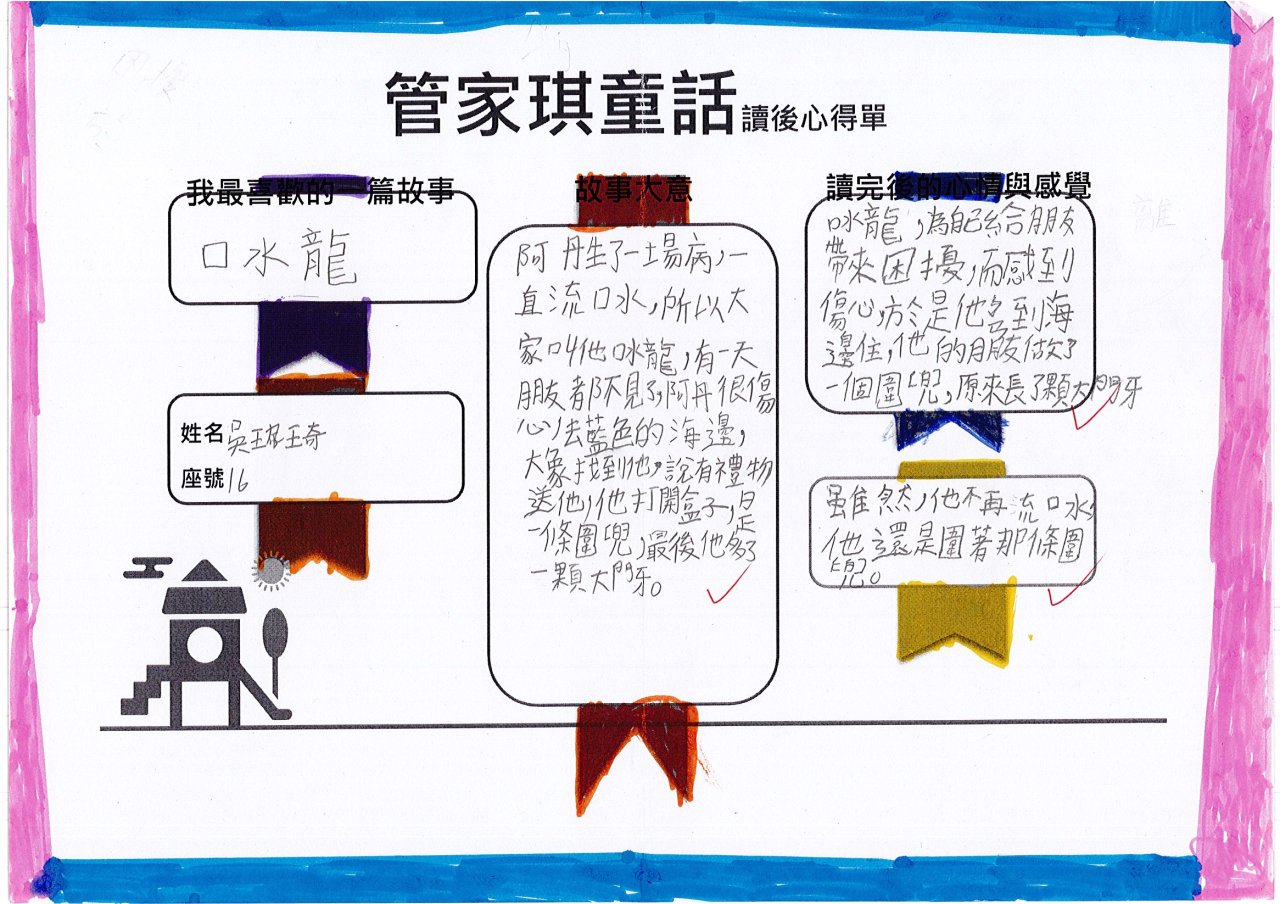 管家琪童話讀後心得單
我最喜歡的一篇故事
口水龍
姓名
座號16
故事大意
阿丹生了一場病,一
直流口水,所以大
家叫他口水龍,有一天
朋友都不見了,阿丹很傷
心,去藍色的海邊,
大象找到他,說有禮物
送他,他打開盒子,是
一條圍兜,最後他多了
一顆大門牙。
讀完後的心情與感覺
口水龍,為自己給合朋友
帶來困擾,而感到
傷心,於是他到海
邊住,他的朋友做了
一個圍兜,原來長了顆大門牙
雖然,他不再流口水,
他還是圍著那條圍
兜。